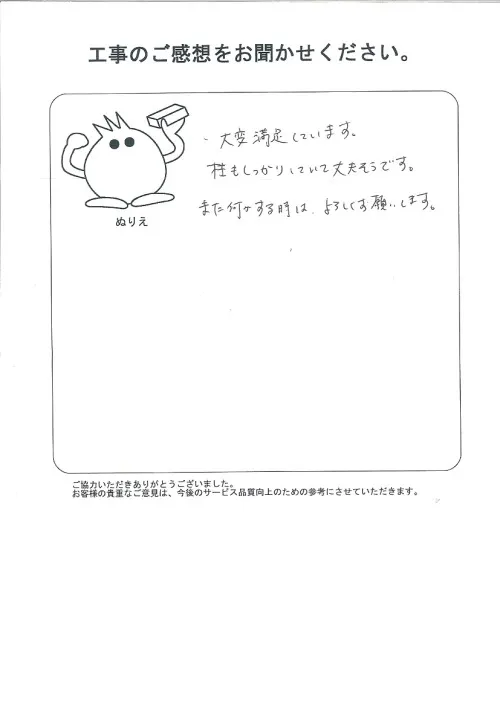 工事のご感想をお聞かせください。
・大変満足しています。
柱もしっかりしていて丈夫そうです。
また何かする時は、よろしくお願いします。
ぬりえ
ご協力いただきありがとうございました。
お客様の貴重なご意見は、今後のサービス品質向上のための参考にさせていただきます。